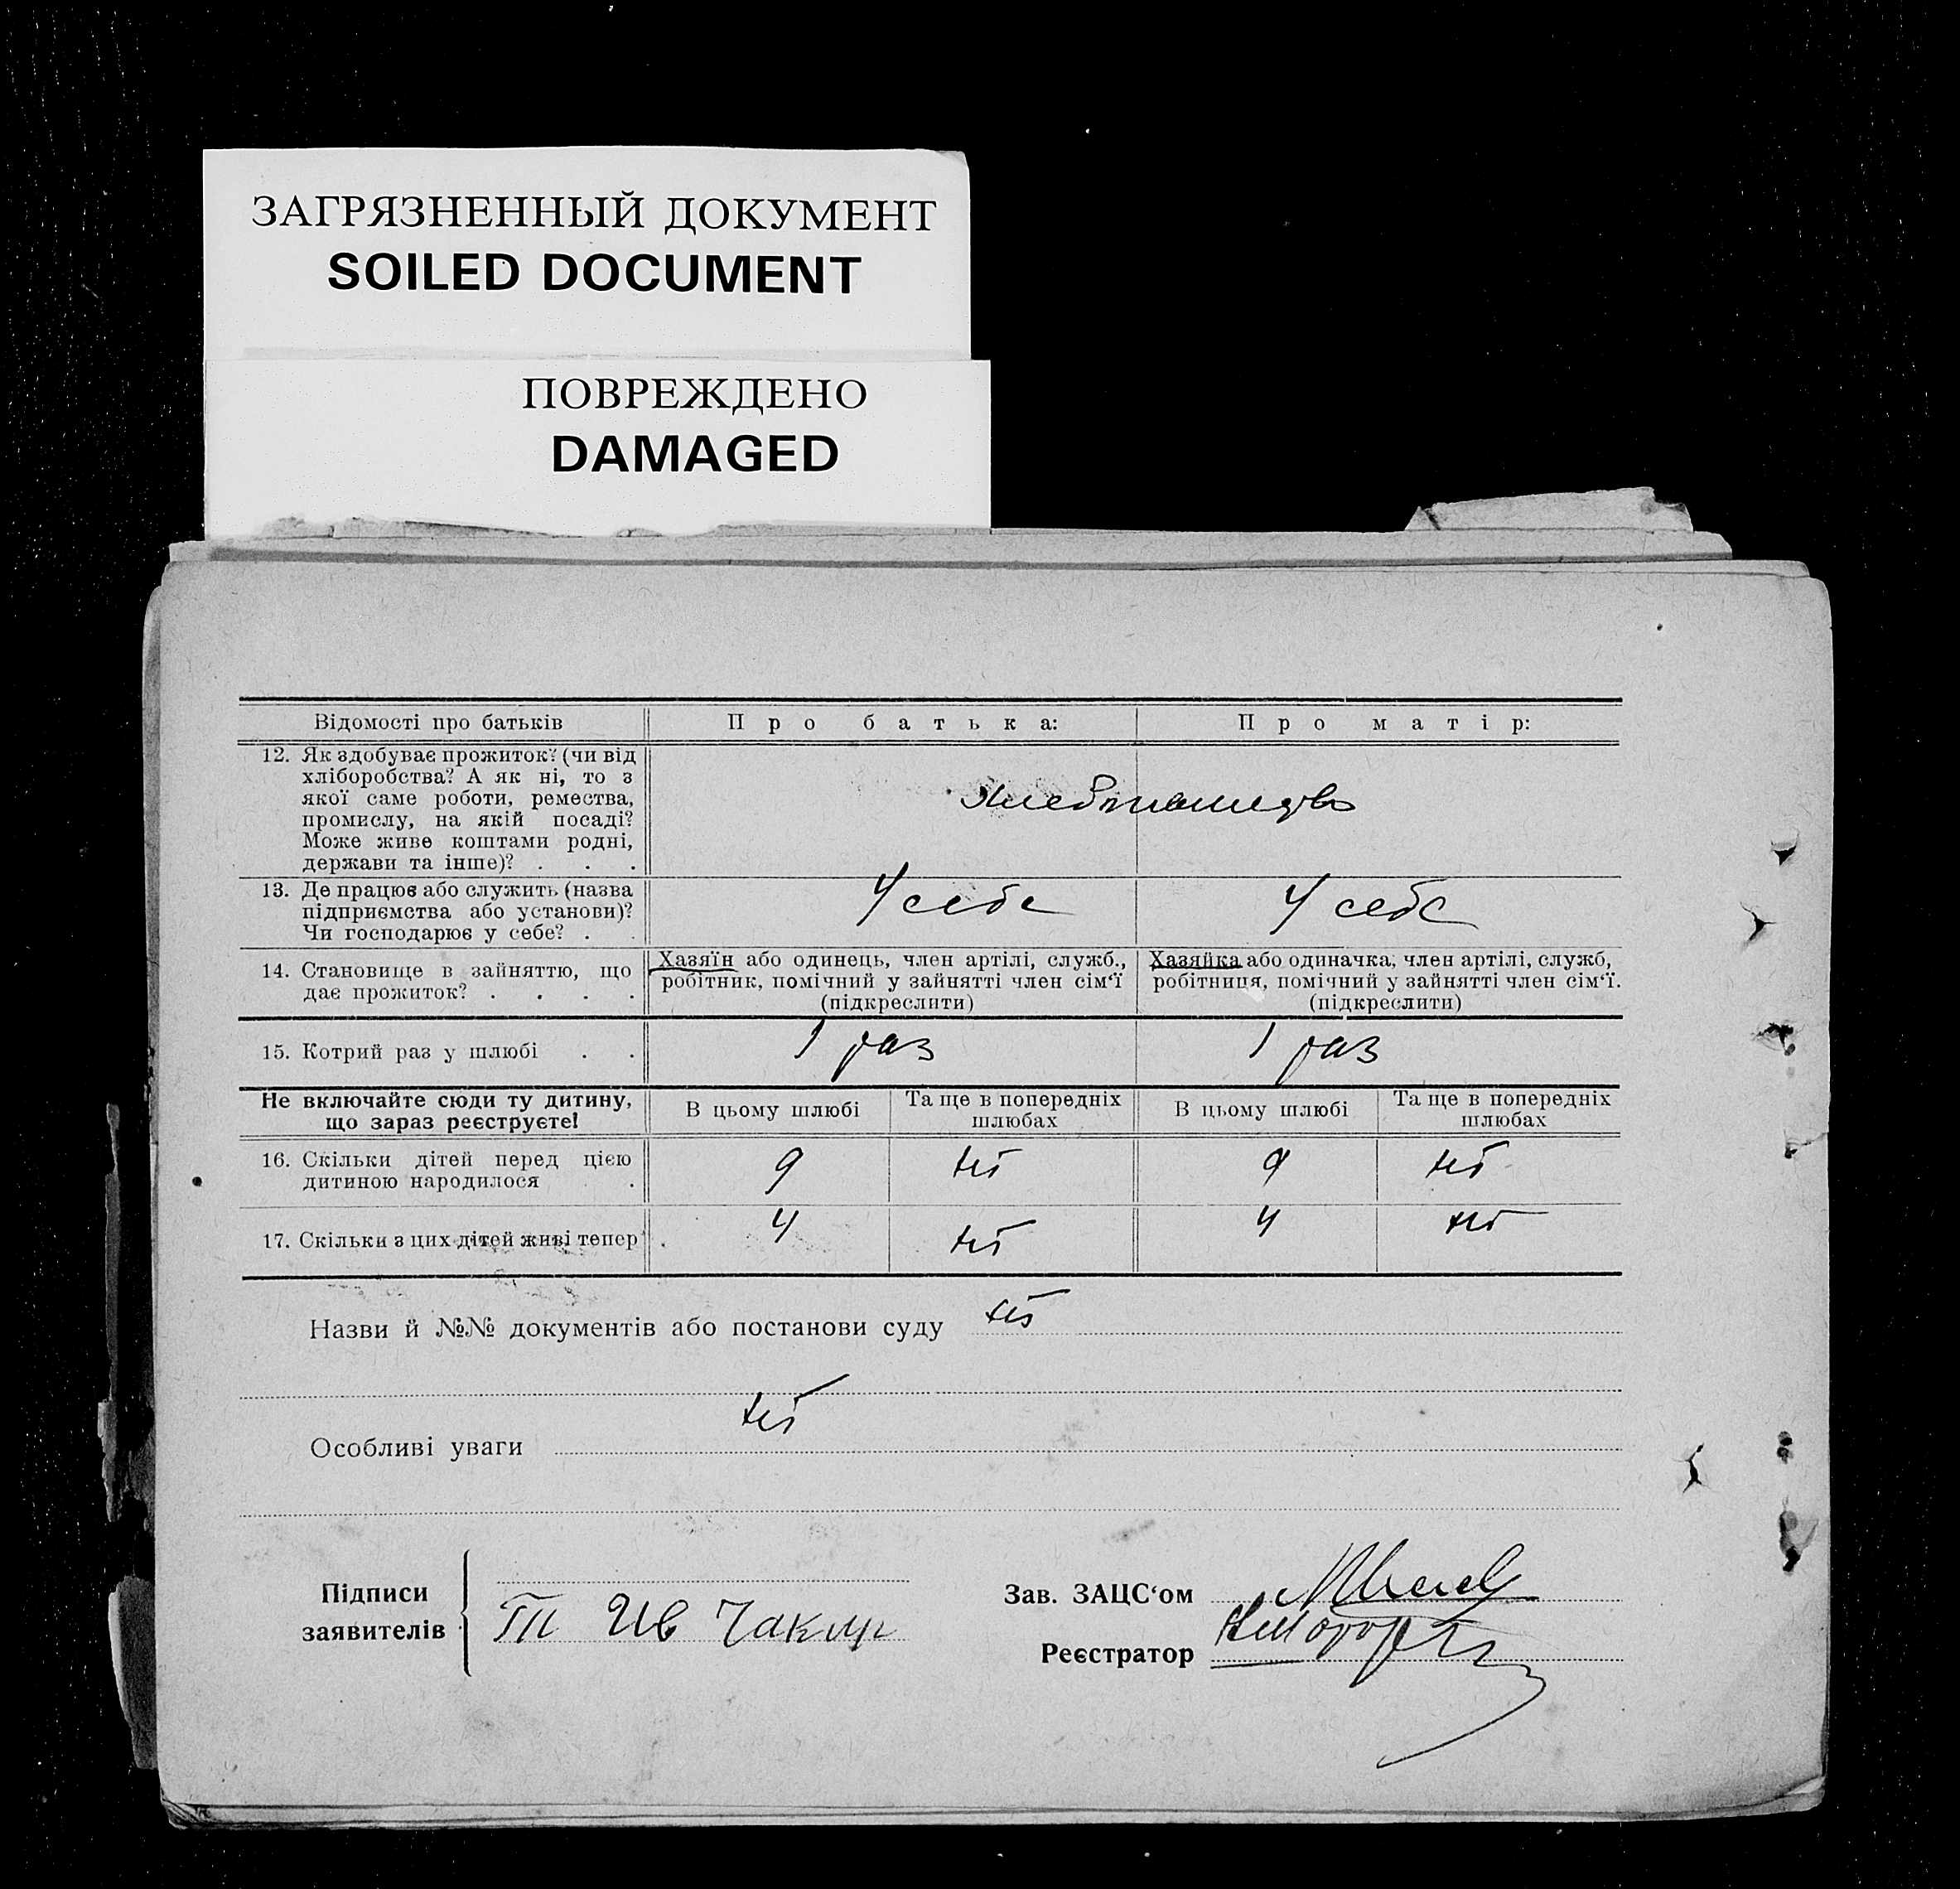 ЗАГРЯЗНЕННЫЙ ДОКУМЕНТ
SOILED DOCUMENT
ПОВРЕЖДЕНО
DAMAGED
Відомості про батьків
Про батька:
Про матір:
12. Як здобуває прожиток? (чи від
хліборобства? А як ні, то з
якої саме роботи, ремества,
промислу, на якій посаді?
Може живе коштами родні,
держави та інше)? . . .
13. Де працює або служить (назва
підприємства або установи)?
Чи господарює у себе? .
У себе
У себе
14. Становище в зайняттю, що
дає прожиток? . . . .
Хазяїн або одинець, член артілі, служб.,
робітник, помічний у зайнятті член сім‘ї
(підкреслити)
Хазяйка або одиначка, член артілі, служб,
робітниця, помічний у зайнятті член сім‘ї.
(підкреслити)
15. Котрий раз у шлюбі . .
1 раз
1 раз
Не включайте сюди ту дитину,
що зараз реєструєте!
В цьому шлюбі
Та ще в попередніх
шлюбах
В цьому шлюбі
Та ще в попередніх
шлюбах
16. Скільки дітей перед цією
дитиною народилося .
9
ні
9
ні
17. Скільки з цих дітей живі тепер .
4
ні
4
ні
Назви й №№ документів або постанови суду ні
ні
Особливі уваги
Підписи
заявителів
Чакир
Зав. ЗАЦС‘ом
Реєстратор